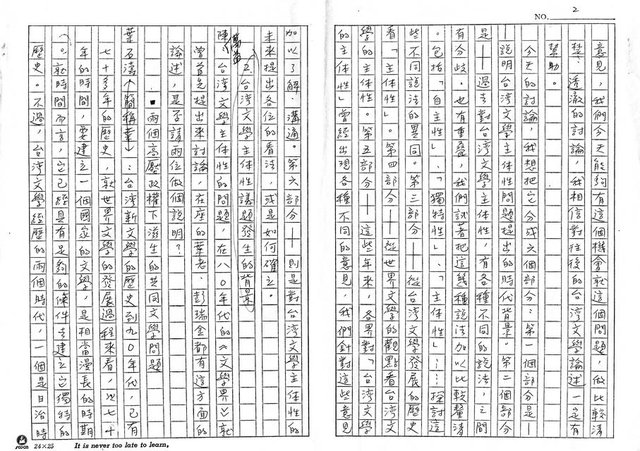 NO. 2
意見，我們今天能夠有這個機會就這個問題，做比較清
楚、透澈的討論，我相信對往後的台灣文學論述一定有
幫助。
今天的討論，我想把它分成六個部分：第一個部分是—
—說明台灣文學主體性問題提出的時代背景。第二個部份
是——過去對台灣文學主體性，有各種不同的說法，之間
有分岐。也有重叠，我們試著把這幾種說法加以比較釐清
。包括「自主性」、「獨特性」、「主體性」……探討這
些不同說法的異同。第三部分——從台灣文學發展的歷史
看「主體性」。第四部分——從世界文學的觀點看台灣文
學的主體性。第五部分——這些年來，各界對「台灣文學
的主體性」曾經出現各種不同的意見，我們針對這些意見
加以了解、溝通。第六部分——則是對台灣文學主體性的
未來提出各位的看法，或是如何確立。
2、台灣文學主體性議題發生的背景
陳萬益：台灣文學主體性的問題，在八〇年代的《文學界》就
曾首先提出來討論，在座的葉老、彭瑞金都有這方面的
論述，是否請兩位做個說明？
▪兩個高壓政權下派生的共同文學問題
葉石濤（簡稱葉）：台灣新文學的歷史到九〇年代，已有
七十多年的歷史，就世界文學的發展過程來看，以七十
年的時間，要建立一個國家的文學，是相當漫長的時期
。就時間而言，它已經具有足夠的條件去建立它獨特的
歷史。不過，台灣文學經歷的兩個時代，一個是日治時
24×25 It is never too late to learn,